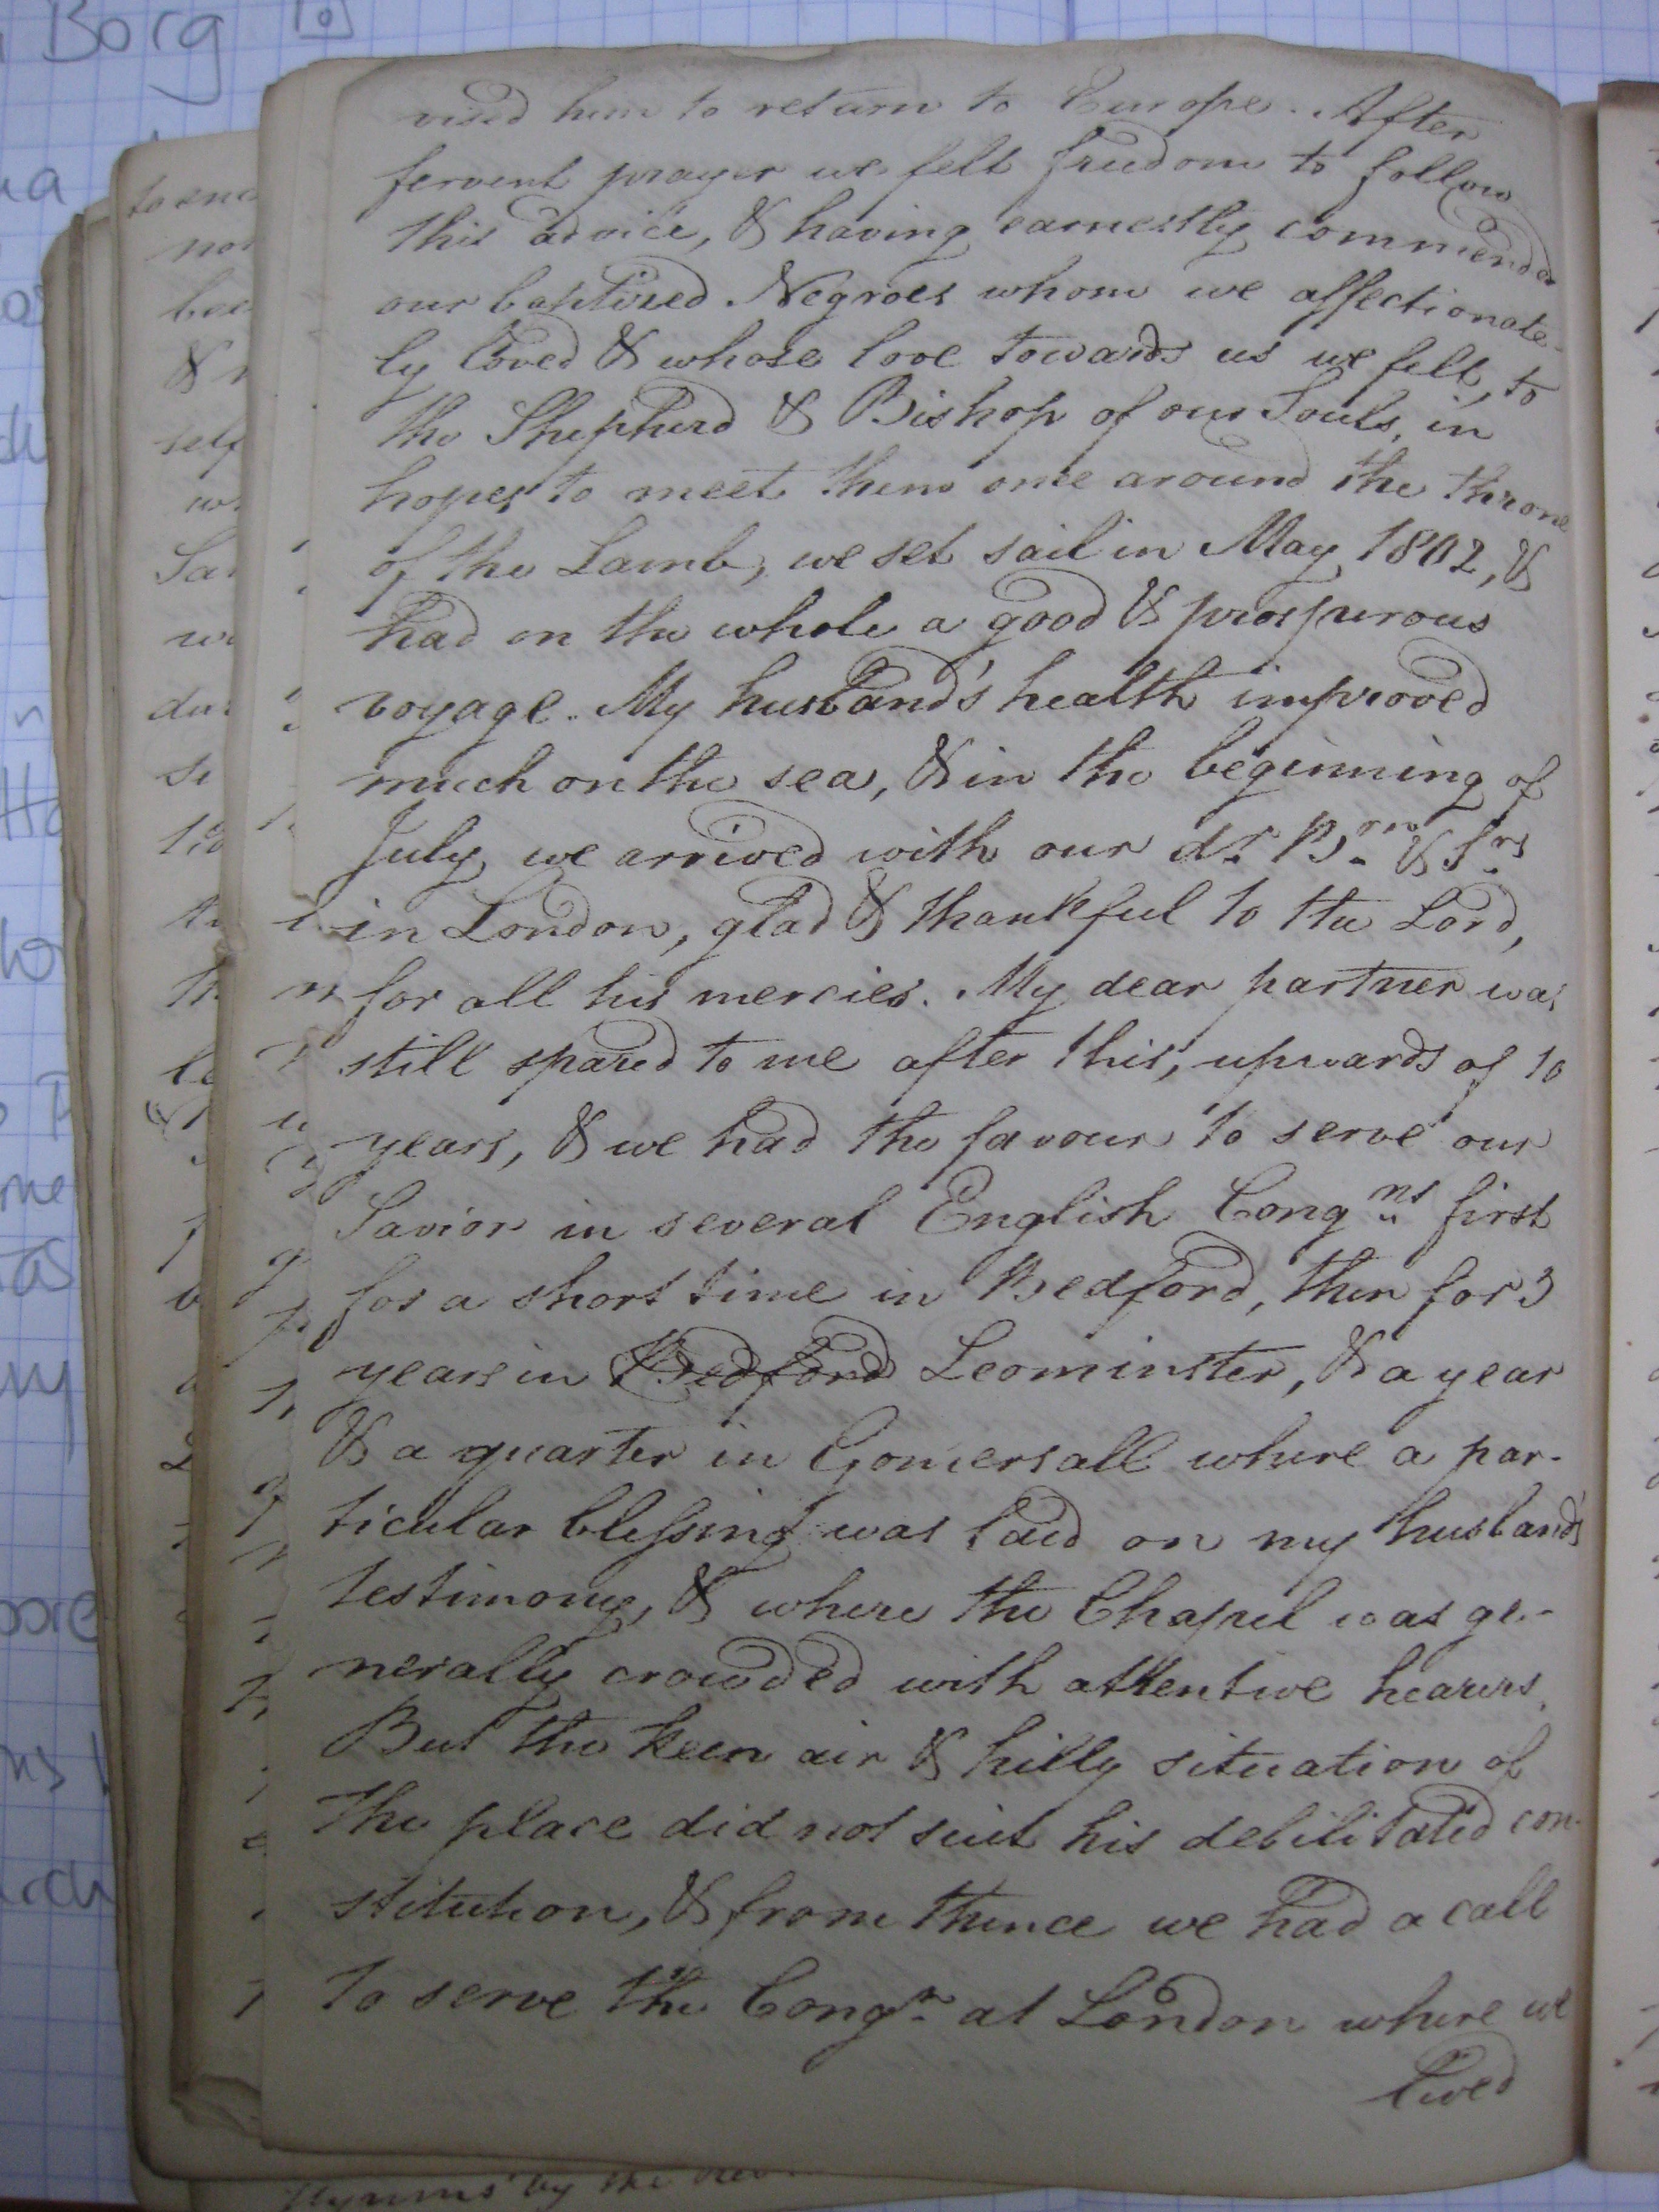 vised him to return to Europe. After
fervent prayer we felt freedom to follow
this advice, & having earnestly commended
our baptized Negroes whom we affectionate-
ly loved & whose love towards us we felt, to
the Shepherd & Bishop of our Souls, in
hopes to meet them once around the throne
of the Lamb, we set sail in May 1802, &
had on the whole a good & prosperous
voyage. My husband's health improved
much on the sea, & in the beginning of
July we arrived with our dr. Brn & Srs
in London, glad & thankful to the Lord,
for all his mercies. My dear partner was
still spared to me after this, upwards of 10
years, & we had the favour to serve our
Savior in several English Congns first
for a short time in Bedford, then for 3
years in Bedford Leominster, & a year
& a quarter in Gomersall where a par-
ticular blessing was laid on my husband's
testimony, & where the Chapel was ge-
nerally crowded with attentive hearers.
But the keen air & hilly situation of
the place did not suit his debilitated con-
stitution, & from thence we had a call
to serve the Congn. at London where we
lived